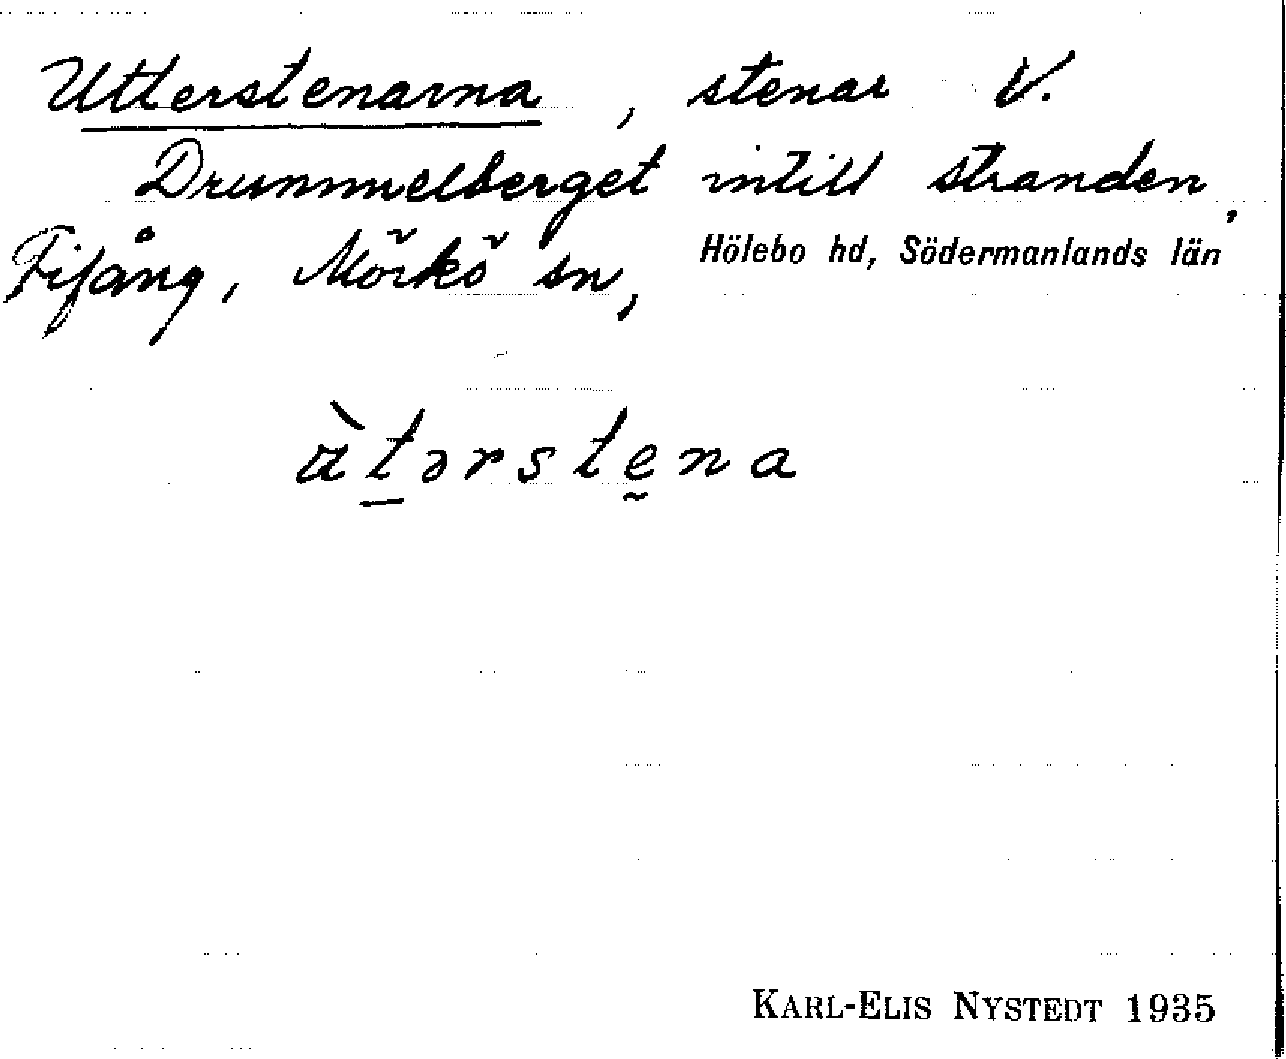 Utterstenarna, stenar V.
Drummelberget intill stranden,
Fifång, Mörkö sn, Hölebo hd, Södermanlands län
àtərstena
KARL-ELIS NYSTEDT 1935